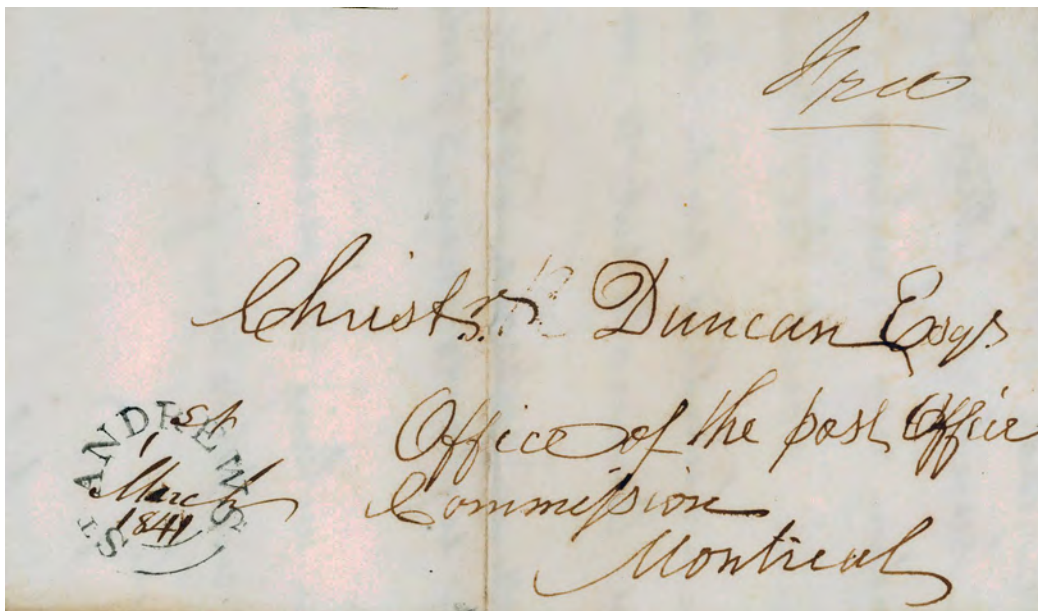 Free
Christr. Duncan Esqr.
Office of the post Office
Commission
Montreal
ST ANDREWS
1st
March
1841